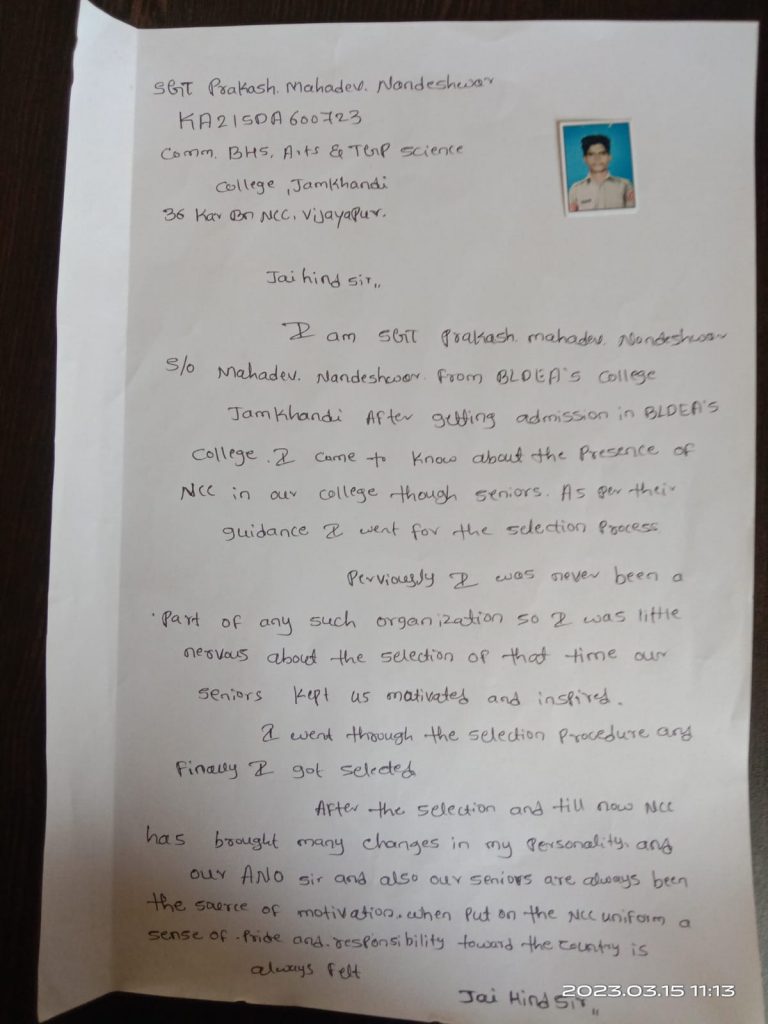 SGT Prakash. Mahadev. Nandeshwar
KA21SDA600723
Comm. BHS, Arts & TGP Science
College, Jamkhandi
36 Kar Bn NCC, Vijayapur.
Jai hind sir,,
I am SGT Prakash. mahadev. Nandeshwar
S/o Mahadev. Nandeshwar. from BLDEA's College
Jamkhandi After getting admission in BLDEA's
College. I come to know about the Presence of
NCC in our college though seniors. As per their
guidance I went for the selection Process
Perviously I was never been a
Part of any such organization so I was little
nervous about the selection of that time our
seniors kept us motivated and inspired.
I went through the selection Procedure and
Finally I got selected
After the selection and till now NCC
has brought many changes in my Personality. and
our ANO sir and also our seniors are always been
the saerce of motivation. when Put on the NCC uniform a
sense of Pride and responsibility toward the country is
always Felt
Jai Hind Sir,,
2023.03.15 11:13